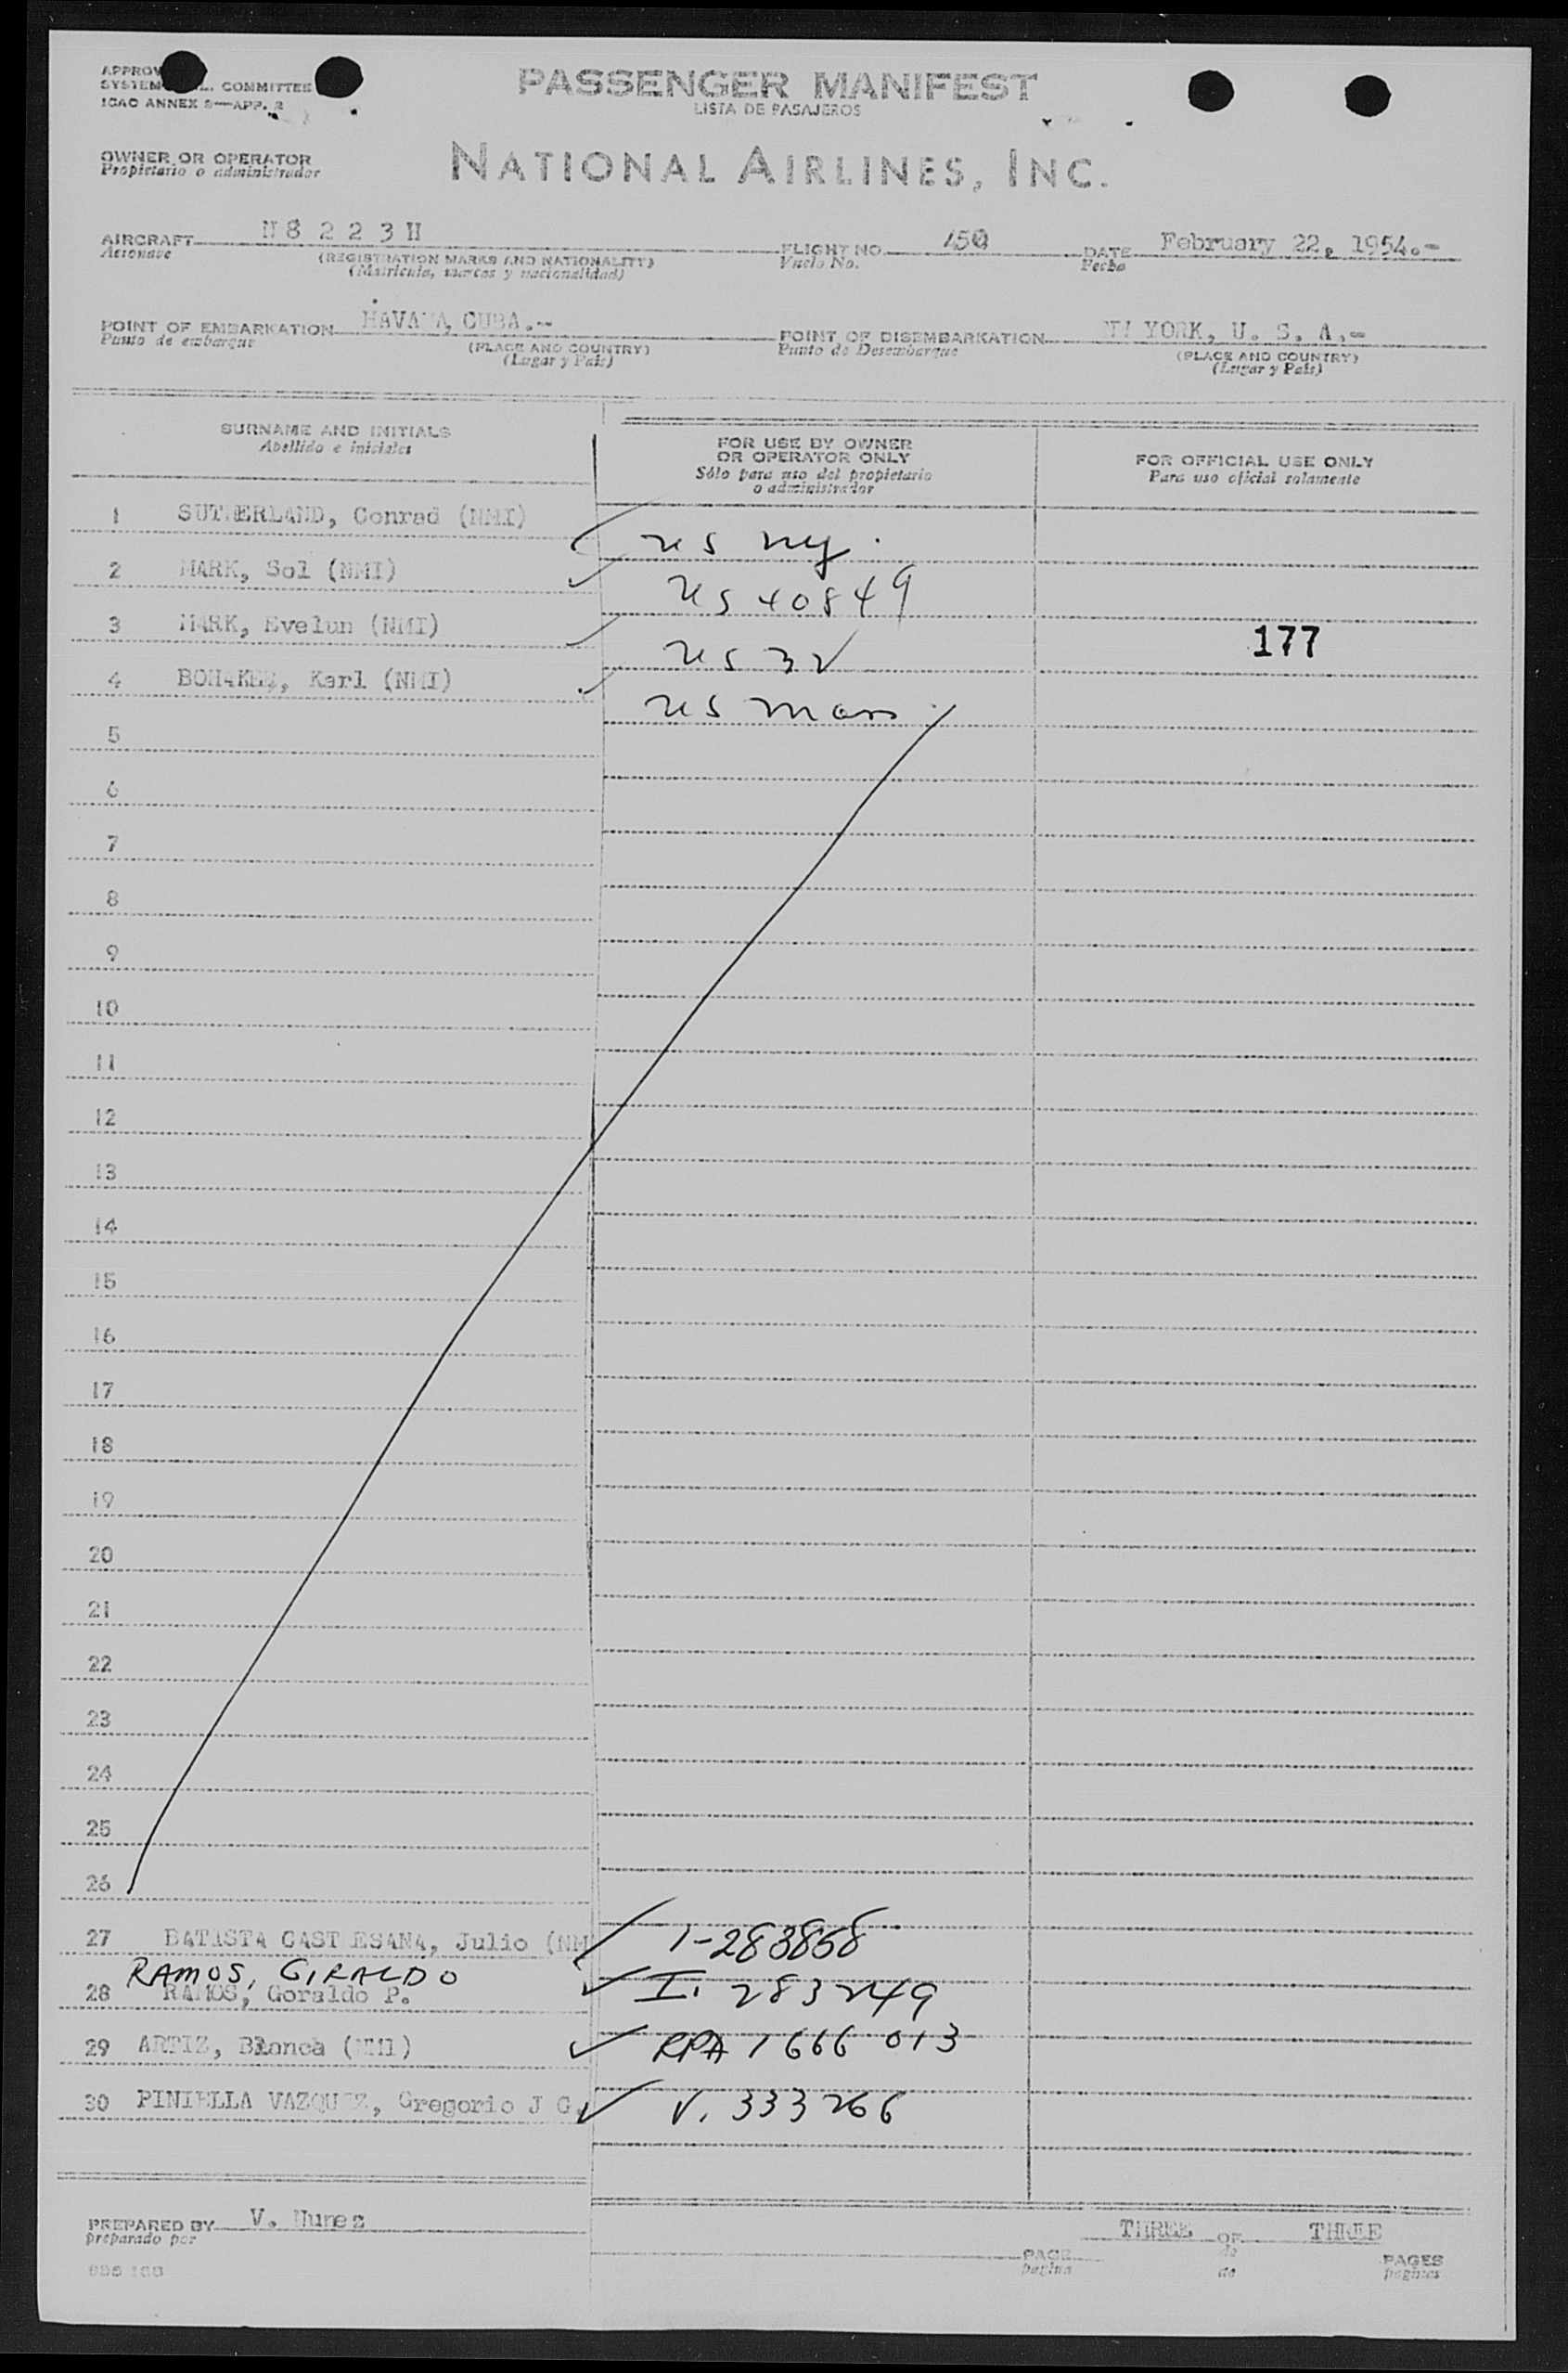 APPROV
SYSTEM COMMITTEE
ICAO ANNEX 9—APP. 2
PASSENGER MANIFEST
LISTA DE PASAJEROS
OWNER OR OPERATOR
Propietario o administrador
NATIONAL AIRLINES, INC.
AIRCRAFT N 8 2 2 3 H FLIGHT NO. 450 DATE February 22, 1954.-
Aeronave (REGISTRATION MARKS AND NATIONALITY) Vuelo No. Fecha
(Matrícula, marcas y nacionalidad)
POINT OF EMBARKATION HAVANA, CUBA.-- POINT OF DISEMBARKATION YORK, U. S. A.-
Punto de embarque (PLACE AND COUNTRY) Punto de Desembarque (PLACE AND COUNTRY)
(Lugar y País) (Lugar y País)
SURNAME AND INITIALS FOR USE BY OWNER OR OPERATOR ONLY FOR OFFICIAL USE ONLY
Apellido e iniciales Sólo para uso del propietario o administrador Para uso oficial solamente
1 SUTHERLAND, Conrad (NMI) US NY.
2 MARK, Sol (NMI) US 40849
3 MARK, Evelun (NMI) US 32 177
4 Karl (NMI) US Mass
5
6
7
8
9
10
11
12
13
14
15
16
17
18
19
20
21
22
23
24
25
26
27 BATISTA Julio (NM 1-283868
RAMOS, GIRALDO
28 RAMOS, Goraldo P. I. 283249
29 ARTIZ, Blanca RPA 1666 013
30 PINIELLA VAZQUEZ, Gregorio J G. V. 333266
PREPARED BY V. Nunez
preparado por
PAGE THREE OF THREE PAGES
pagina de de paginas